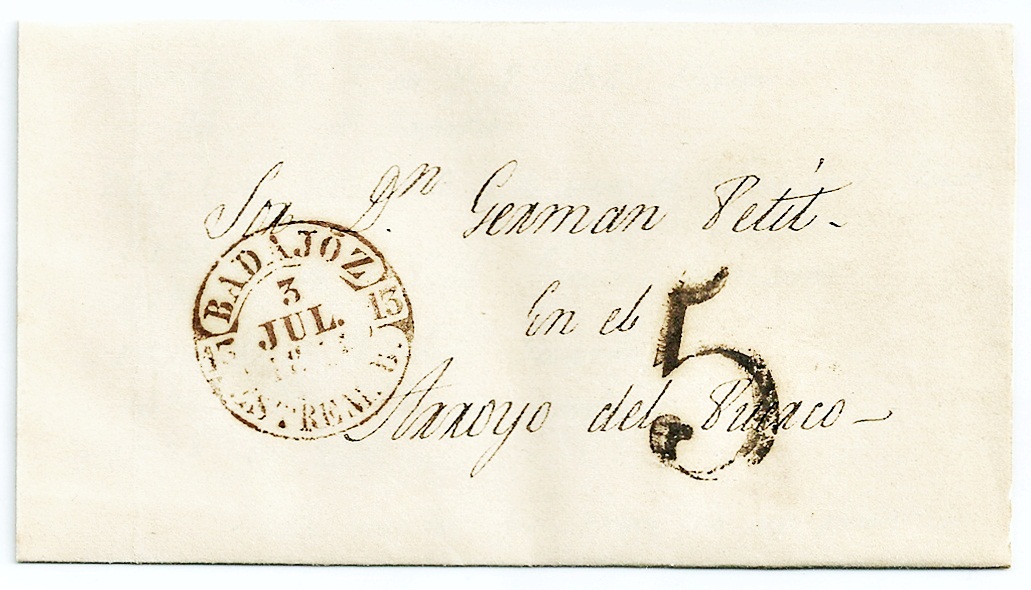 Sor Dn. German Petit-
En el
Arroyo del Puerco-
BADAJOZ
3
JUL.
13
ESTREM. B.
5